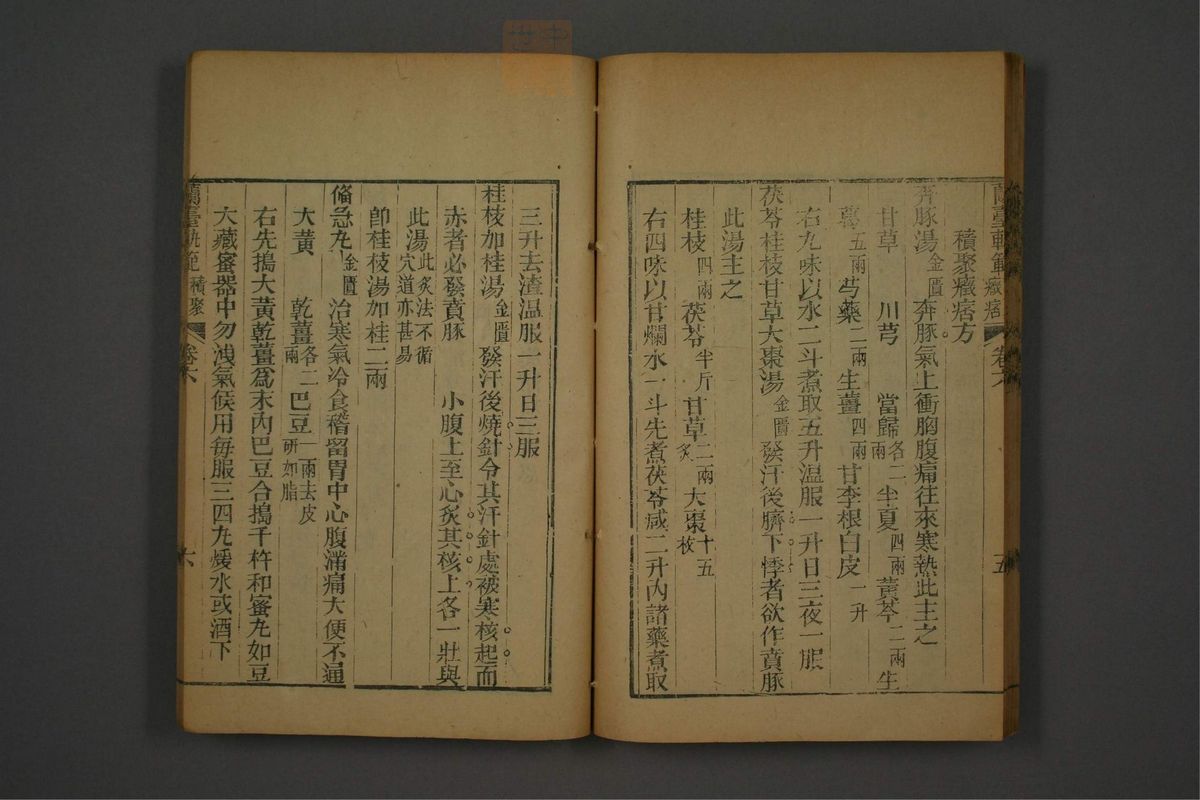 蘭臺軌範 癥痞 卷六 五
積聚癥痞方
奔豚湯金匱奔豚氣上衝胸腹痛往來寒熱此主之
甘草 川芎 當歸各二兩 半夏四兩 黃芩二兩 生
葛五兩 芍藥二兩 生薑四兩 甘李根白皮一升
右九味以水二斗煮取五升温服一升日三夜一服
茯苓桂枝甘草大棗湯金匱發汗後臍下悸者欲作賁豚
此湯主之
桂枝四兩 茯苓半斤 甘草二兩炙 大棗十五枚
右四味以甘爛水一斗先煮茯苓減二升內諸藥煮取
三升去渣温服一升日三服
桂枝加桂湯金匱發汗後燒針令其汗針處被寒核起而
赤者必發賁豚 小腹上至心炙其核上各一壯與
此湯此炙法不循穴道亦甚易
卽桂枝湯加桂二兩
備急丸金匱治寒氣冷食稽留胃中心腹滿痛大便不通
大黃 乾薑各二兩 巴豆一兩去皮研如脂
右先搗大黃乾薑爲末內巴豆合搗千杵和蜜丸如豆
大藏蜜器中勿洩氣候用每服三四丸煖水或酒下
蘭臺軌範 積聚 卷六 六